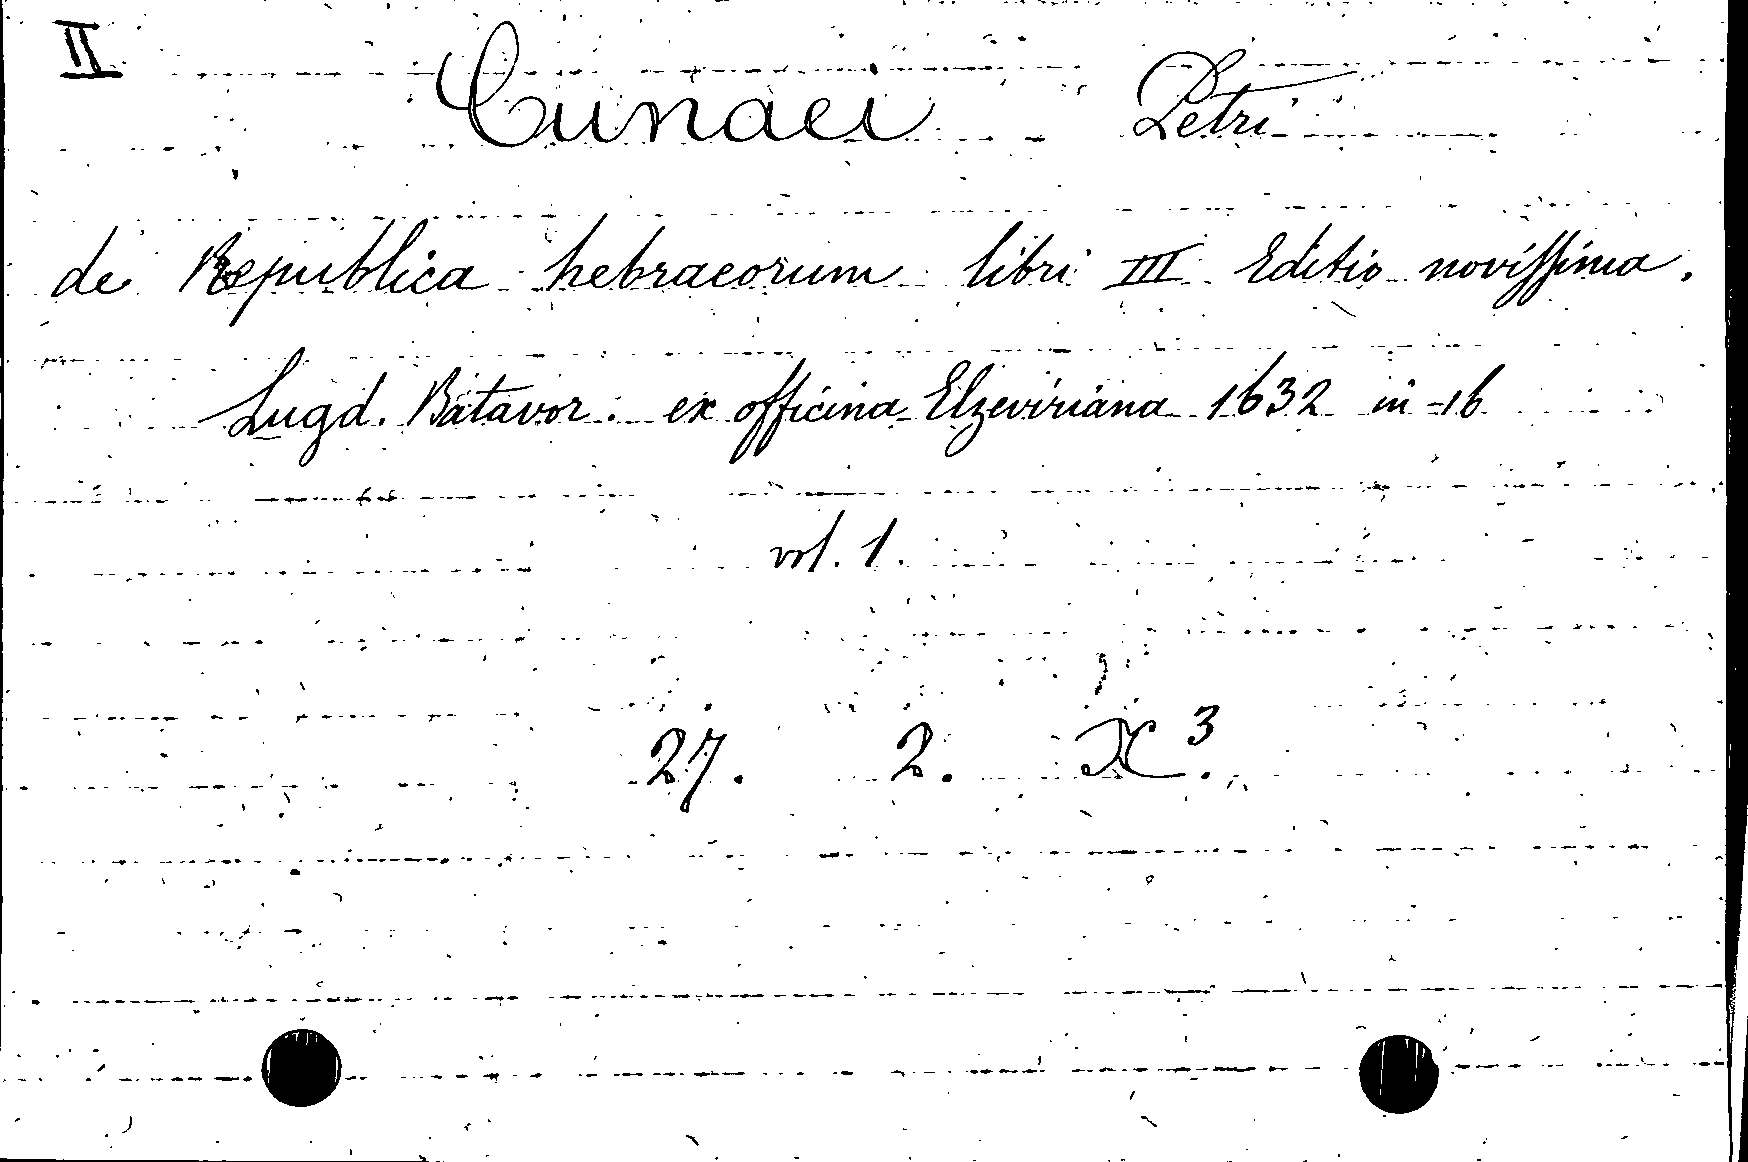 II
Cunaei Petri
de Republica hebraeorum libri III Editio novissima.
Lugd. Batavor. ex officina Elzeviriana 1632 in-16
vol. 1.
27. 2. X³.